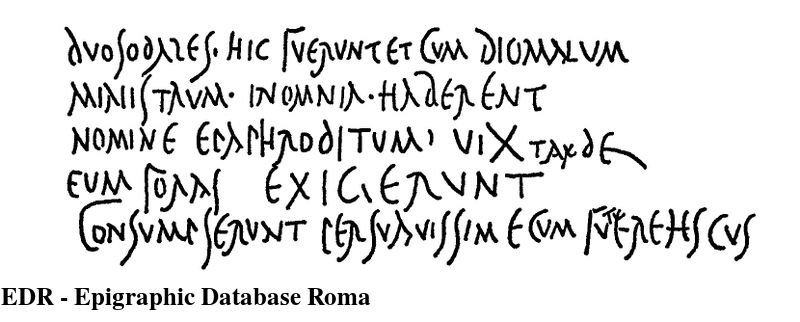 DVO SODALES· HIC FVERVNT ET CVM DIO MALVM
MINISTRVM· IN OMNIA· HABERENT
NOMINE EPAPHRODITVM· VIX TARDE
EVM FORAS EXIGERVNT
CONSVMPSERVNT PERSVAVISSIME CVM FVTVERE HS CVS
EDR - Epigraphic Database Roma